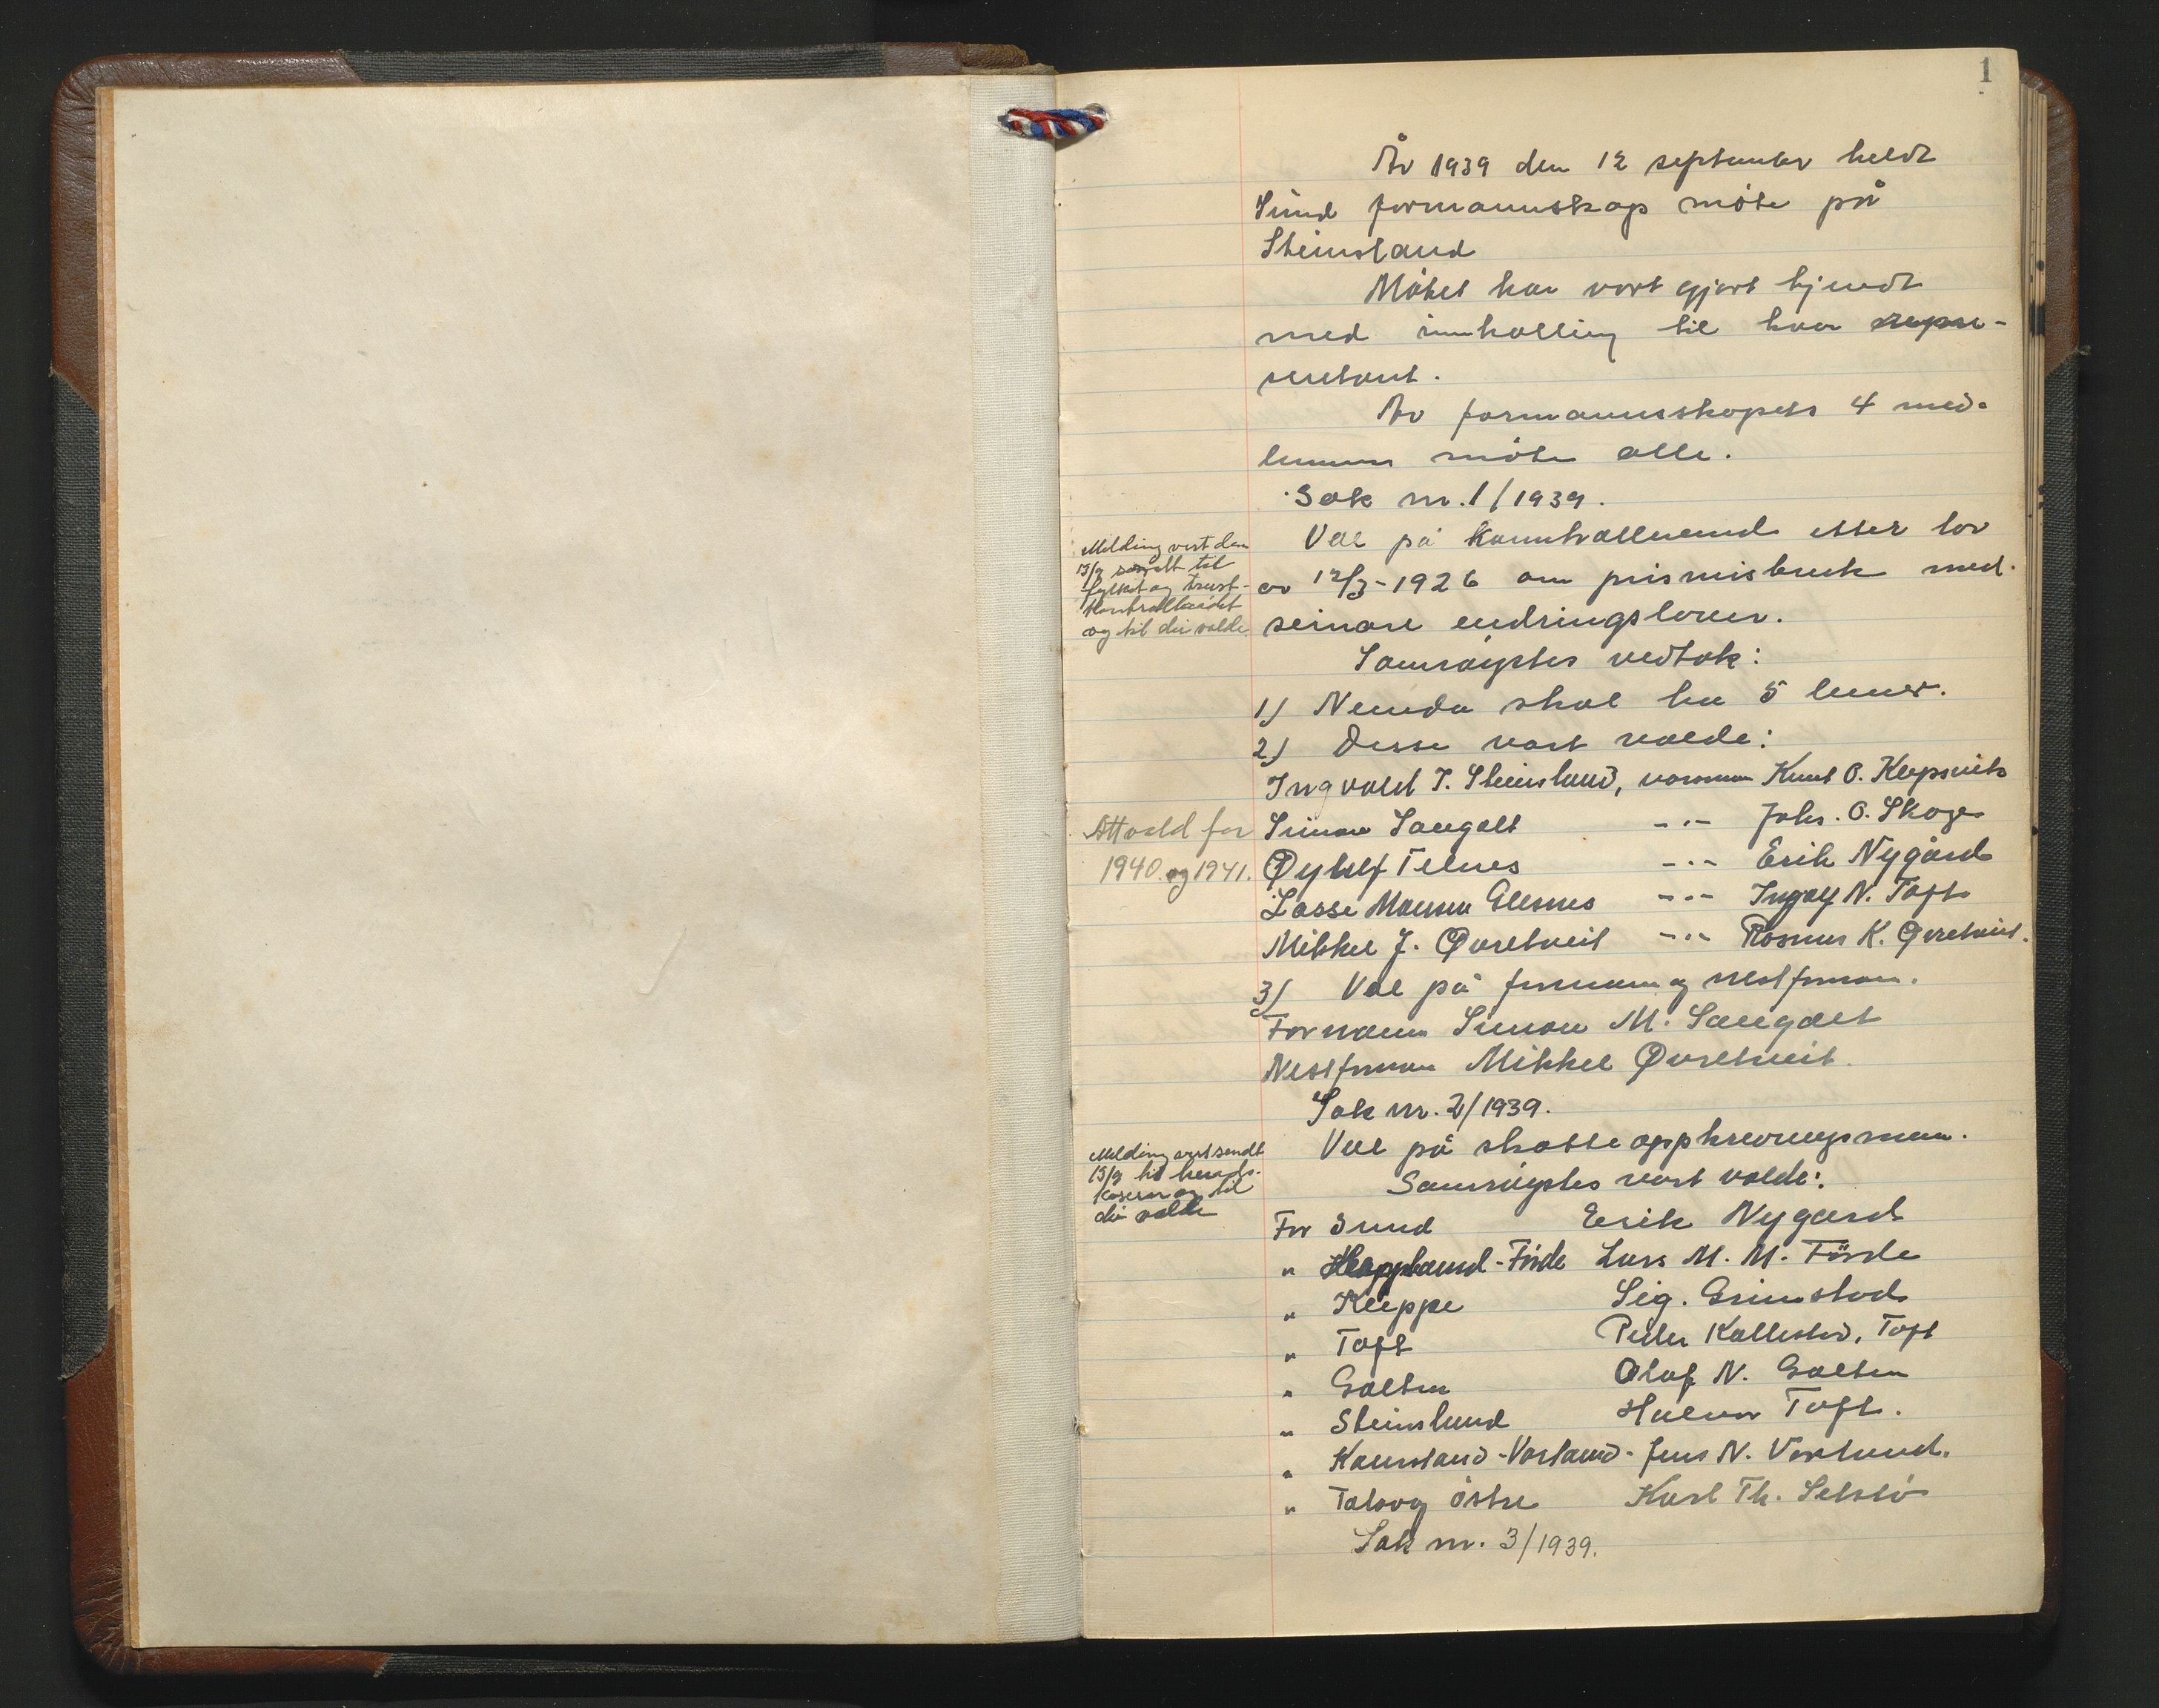 1
År 1939 den 12 september heldt
Sund formannskap møte på
Steinsland
Møtet har vort gjort kjendt
med innkalling til hver repre-
sentant.
Av formannsskapets 4 med-
lemmer møtte alle.
Sak nr. 1/1939.
Melding vert den
15/9 sendt til
fylket og trust-
kontrollkontoret
og til dei valde
Val på kontrollnemnd etter lov
av 12/3-1926 om prismisbruk med
seinare endringslover.
Samrøystes vedtok:
1) Nemda skal ha 5 lemer.
2) Desse vart valde:
Ingvald T. Steinsland, varaman Knut O. Klepsvik
Attvald for
1940 og 1941.
Simon Sangolt -"- Johs. O. Skoge
Øylulf Telnes -"- Erik Nygård
Lasse Monsen Glesnes -"- Ingolf N. Toft
Mikkel J. Øvretveit -"- Rasmus K. Øvretveit.
3) Val på formann og nestforman.
Formann Simon M. Sangolt
Nestforman Mikkel Øvretveit.
Sak nr. 2/1939.
Melding vert sendt
15/9 til herads-
kaserar og til
dei valde
Val på skatteoppkrevingsmenn.
Samrøystes vart valde:
For Sund Erik Nygard
" Høyland-Förde Lars M. M. Förde
" Kleppe Sig. Grimstad
" Toft Peder Kallestad, Toft
" Golten Olaf N. Golten
" Steinsland Halvor Toft.
" Kausland-Vorland- Jens N. Vorland.
" Tælavåg östre Karl Th. Selstö
Sak nr. 3/1939.